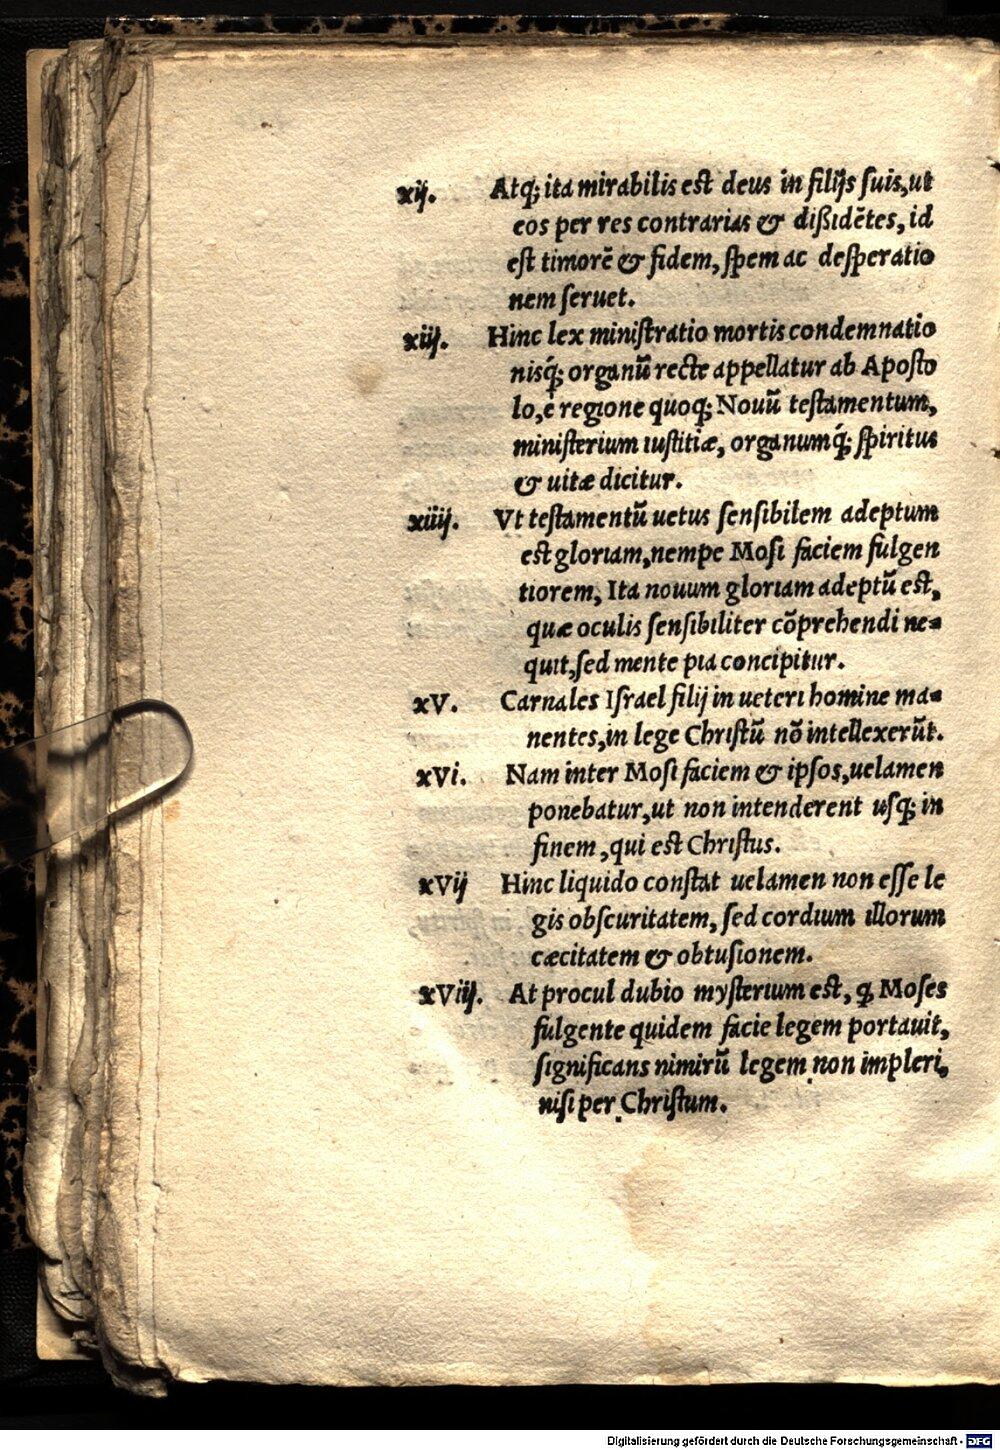 xij. Atq; ita mirabilis est deus in filijs suis, ut
eos per res contrarias & dißidētes, id
est timorē & fidem, spem ac desperatio
nem seruet.
xiij. Hinc lex ministratio mortis condemnatio
nisq́; organū recte appellatur ab Aposto
lo, è regione quoq; Nouū testamentum,
ministerium iustitiæ, organumq́; spiritus
& uitæ dicitur.
xiiij. Vt testamentū uetus sensibilem adeptum
est gloriam, nempe Mosi faciem fulgen
tiorem, Ita nouum gloriam adeptū est,
quæ oculis sensibiliter cōprehendi ne=
quit, sed mente pia concipitur.
xV. Carnales Israel filij in ueteri homine ma=
nentes, in lege Christū nō intellexerūt.
xVi. Nam inter Mosi faciem & ipsos, uelamen
ponebatur, ut non intenderent usq; in
finem, qui est Christus.
xVij Hinc liquido constat uelamen non esse le
gis obscuritatem, sed cordium illorum
cæcitatem & obtusionem.
xViij. At procul dubio mysterium est, ꝙ Moses
fulgente quidem facie legem portauit,
significans nimirū legem non impleri,
nisi per Christum.
Digitalisierung gefördert durch die Deutsche Forschungsgemeinschaft - DFG